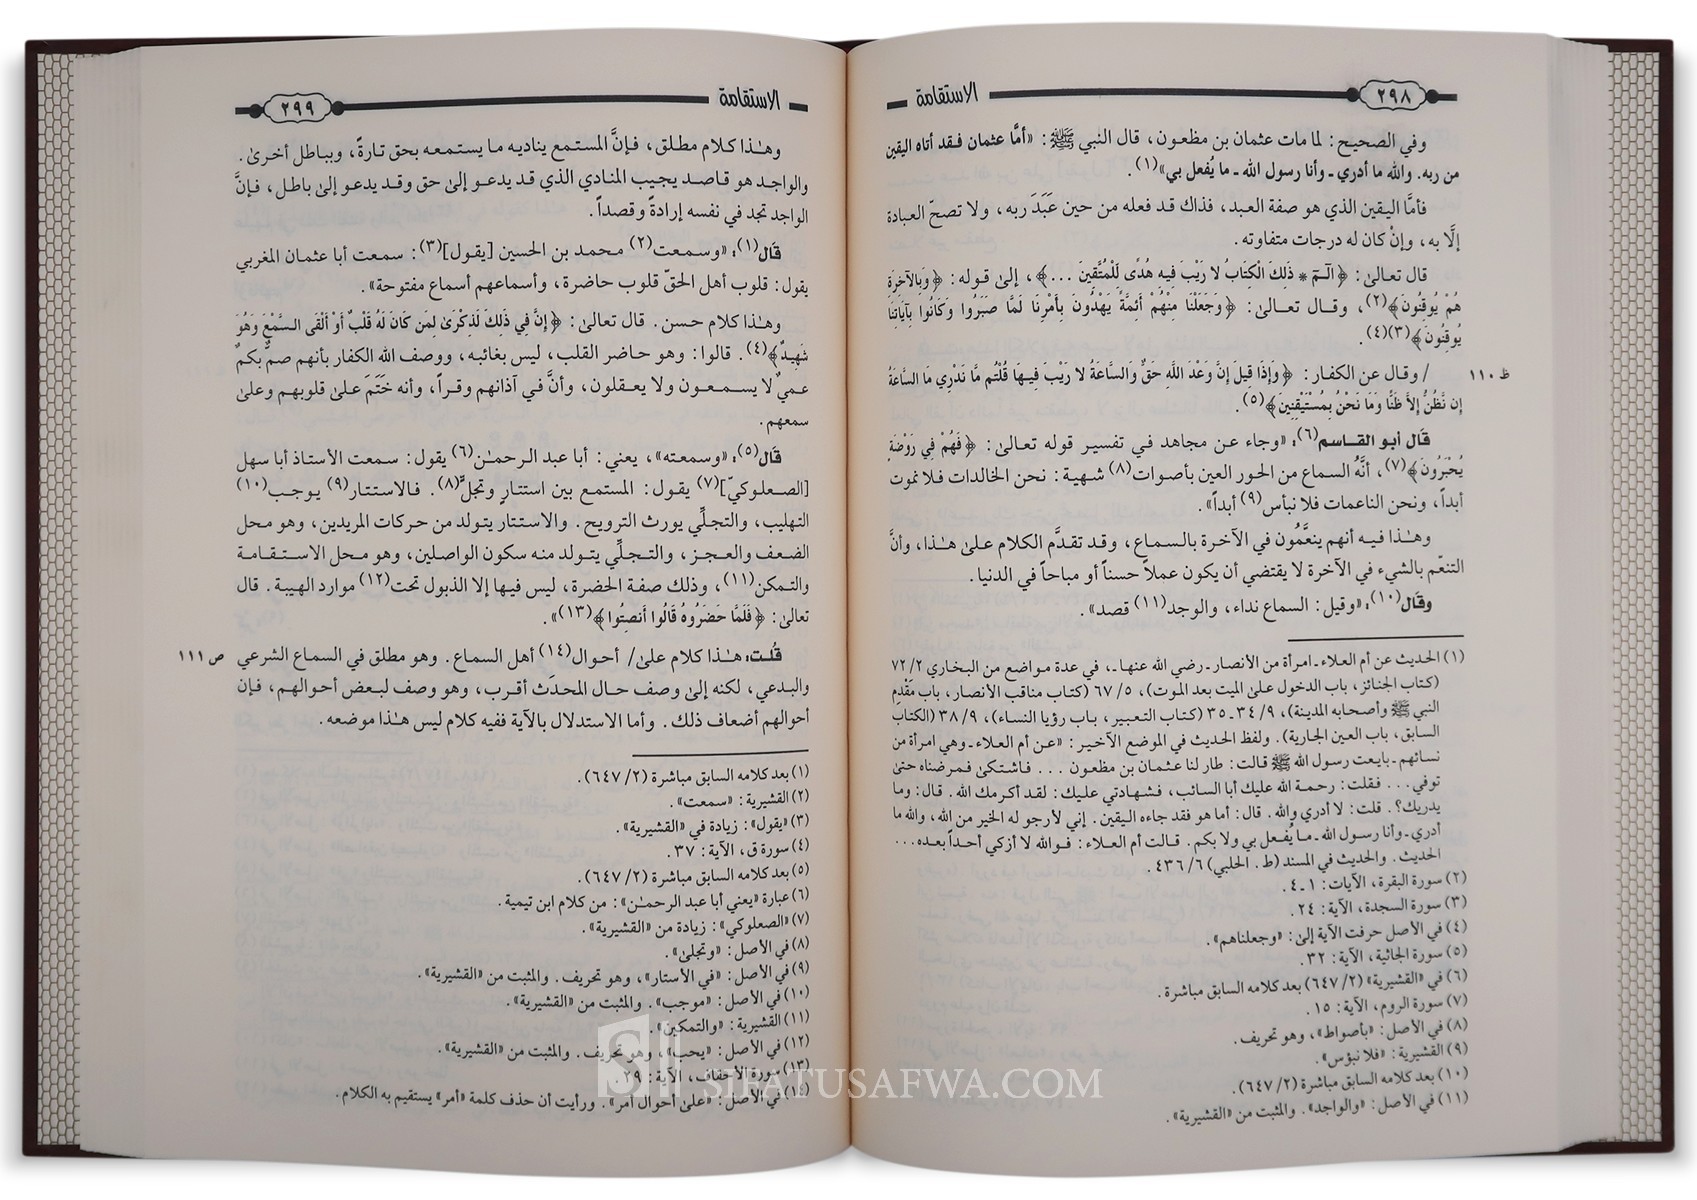 الاستقامة ٢٩٨
وفي الصحيح: لما مات عثمان بن مظعون، قال النبي ﷺ: «أمَّا عثمان فقد أتاه اليقين
من ربه. والله ما أدري ـ وأنا رسول الله ـ ما يُفعل بي»(١).
فأمَّا اليقين الذي هو صفة العبد، فذاك قد فعله من حين عَبَدَ ربه، ولا تصحّ العبادة
إلَّا به، وإنْ كان له درجات متفاوته.
قال تعالىٰ: ﴿الٓمٓ * ذَلِكَ الْكِتَابُ لا رَيْبَ فِيهِ هُدًى لِلْمُتَّقِينَ ...﴾، إلىٰ قوله: ﴿وَبِالآخِرَةِ
هُمْ يُوقِنُونَ﴾(٢)، وقال تعالىٰ: ﴿وَجَعَلْنَا مِنْهُمْ أَئِمَّةً يَهْدُونَ بِأَمْرِنَا لَمَّا صَبَرُوا وَكَانُوا بِآيَاتِنَا
يُوقِنُونَ﴾(٣)(٤).
/ وقال عن الكفار: ﴿وَإِذَا قِيلَ إِنَّ وَعْدَ اللَّهِ حَقٌّ وَالسَّاعَةُ لا رَيْبَ فِيهَا قُلْتُم مَّا نَدْرِي مَا السَّاعَةُ ظ ١١٠
إِن نَّظُنُّ إِلاَّ ظَنًّا وَمَا نَحْنُ بِمُسْتَيْقِنِينَ﴾(٥).
قال أبو القاسم(٦): «وجاء عن مجاهد في تفسير قوله تعالىٰ: ﴿فَهُمْ فِي رَوْضَةٍ
يُحْبَرُونَ﴾(٧)، أنَّهُ السماع من الحور العين بأصوات(٨) شهية: نحن الخالدات فلا نموت
أبداً، ونحن الناعمات فلا نبأس(٩) أبداً».
وهٰذا فيه أنهم ينعَّمُون في الآخرة بالسماع، وقد تقدَّم الكلام علىٰ هٰذا، وأنَّ
التنعّم بالشيء في الآخرة لا يقتضي أن يكون عملاً حسناً أو مباحاً في الدنيا.
وقال(١٠): «وقيل: السماع نداء، والوجد(١١) قصد».
(١) الحديث عن أم العلاء ـ امرأة من الأنصار ـ رضي الله عنها ـ، في عدة مواضع من البخاري ٢/ ٧٢
(كتاب الجنائز، باب الدخول علىٰ الميت بعد الموت)، ٥/ ٦٧ (كتاب مناقب الأنصار، باب مَقْدِم
النبي ﷺ وأصحابه المدينة)، ٩/ ٣٤ ـ ٣٥ (كتاب التعبير، باب رؤيا النساء)، ٩/ ٣٨ (الكتاب
السابق، باب العين الجارية). ولفظ الحديث في الموضع الأخير: «عن أم العلاء ـ وهي امرأة من
نسائهم ـ بايعت رسول الله ﷺ قالت: طار لنا عثمان بن مظعون ... فاشتكىٰ فمرضناه حتىٰ
توفي ... فقلت: رحمة الله عليك أبا السائب، فشهادتي عليك: لقد أكرمك الله. قال: وما
يدريك؟. قلت: لا أدري والله. قال: أما هو فقد جاءه اليقين. إني لأرجو له الخير من الله، والله ما
أدري ـ وأنا رسول الله ـ ما يُفعل بي ولا بكم. قالت أم العلاء: فوالله لا أزكي أحداً بعده ...
الحديث. والحديث في المسند (ط. الحلبي) ٦/ ٤٣٦.
(٢) سورة البقرة، الآيات: ١ ـ ٤.
(٣) سورة السجدة، الآية: ٢٤.
(٤) في الأصل حرفت الآية إلىٰ: «وجعلناهم».
(٥) سورة الجاثية، الآية: ٣٢.
(٦) في «القشيرية» (٢/ ٦٤٧) بعد كلامه السابق مباشرة.
(٧) سورة الروم، الآية: ١٥.
(٨) في الأصل: «بأصواط»، وهو تحريف.
(٩) القشيرية: «فلا نبؤس».
(١٠) بعد كلامه السابق مباشرة (٢/ ٦٤٧).
(١١) في الأصل: «والواجد». والمثبت من «القشيرية».
الاستقامة ٢٩٩
وهٰذا كلام مطلق، فإنَّ المستمع يناديه ما يستمعه بحق تارةً، وبباطل أخرىٰ.
والواجد هو قاصد يجيب المنادي الذي قد يدعو إلىٰ حق وقد يدعو إلىٰ باطل، فإنَّ
الواجد تجد في نفسه إرادةً وقصداً.
قال(١): «وسمعت(٢) محمد بن الحسين [يقول](٣): سمعت أبا عثمان المغربي
يقول: قلوب أهل الحقّ قلوب حاضرة، وأسماعهم أسماع مفتوحة».
وهٰذا كلام حسن. قال تعالىٰ: ﴿إِنَّ فِي ذَلِكَ لَذِكْرَىٰ لِمَن كَانَ لَهُ قَلْبٌ أَوْ أَلْقَى السَّمْعَ وَهُوَ
شَهِيدٌ﴾(٤). قالوا: وهو حاضر القلب، ليس بغائبه، ووصف الله الكفار بأنهم صمٌّ بكمٌ
عميٌ لا يسمعون ولا يعقلون، وأنَّ في آذانهم وقراً، وأنه خَتَمَ علىٰ قلوبهم وعلىٰ
سمعهم.
قال(٥): «وسمعته»، يعني: أبا عبد الرحمٰن(٦) يقول: سمعت الأستاذ أبا سهل
[الصعلوكيّ](٧) يقول: المستمع بين استتارٍ وتجلٍّ(٨). فالاستتار(٩) يوجب(١٠)
التهليب، والتجلِّي يورث الترويح. والاستتار يتولد من حركات المريدين، وهو محل
الضعف والعجز، والتجلِّي يتولد منه سكون الواصلين، وهو محل الاستقامة
والتمكن(١١)، وذلك صفة الحضرة، ليس فيها إلا الذبول تحت(١٢) موارد الهيبة. قال
تعالىٰ: ﴿فَلَمَّا حَضَرُوهُ قَالُوا أَنصِتُوا﴾(١٣)».
قُلت: هٰذا كلام علىٰ/ أحوال(١٤) أهل السماع. وهو مطلق في السماع الشرعي ص ١١١
والبدعي، لكنه إلىٰ وصف حال المحدَث أقرب، وهو وصف لبعض أحوالهم، فإن
أحوالهم أضعاف ذلك. وأما الاستدلال بالآية ففيه كلام ليس هٰذا موضعه.
(١) بعد كلامه السابق مباشرة (٢/ ٦٤٧).
(٢) القشيرية: «سمعت».
(٣) «يقول»: زيادة في «القشيرية».
(٤) سورة ق، الآية: ٣٧.
(٥) بعد كلامه السابق مباشرة (٢/ ٦٤٧).
(٦) عبارة «يعني أبا عبد الرحمٰن»: من كلام ابن تيمية.
(٧) «الصعلوكي»: زيادة من «القشيرية».
(٨) في الأصل: «وتجلىٰ».
(٩) في الأصل: «في الأستار»، وهو تحريف. والمثبت من «القشيرية».
(١٠) في الأصل: «موجب». والمثبت من «القشيرية».
(١١) القشيرية: «والتمكين».
(١٢) في الأصل: «يحب»، وهو تحريف. والمثبت من «القشيرية».
(١٣) سورة الأحقاف، الآية: ٢٩.
(١٤) في الأصل: «علىٰ أحوال أمر». ورأيت أن حذف كلمة «أمر» يستقيم به الكلام.
SIFATUSAFWA.COM